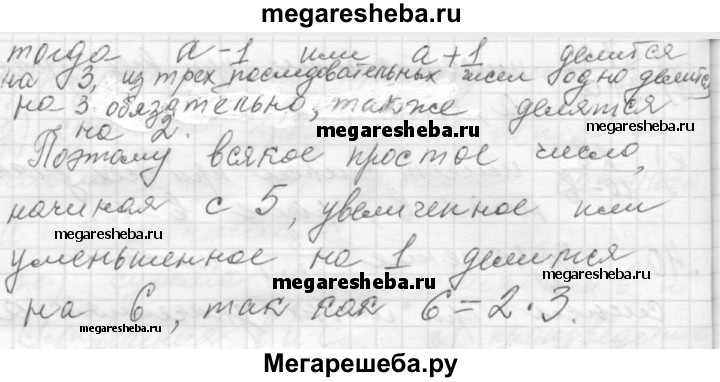 megaresheba.ru
тогда a-1 или a+1 делится
на 3, из трех последовательных чисел одно делится
на 3 обязательно, также делятся
на 2.
megaresheba.ru
megaresheba.ru
Поэтому всякое простое число,
начиная с 5, увеличенное или
megaresheba.ru
уменьшенное на 1 делится
megaresheba.ru
megaresheba.ru
на 6, так как 6=2·3.
megaresheba.ru
megaresheba.ru
Мегарешеба.ру